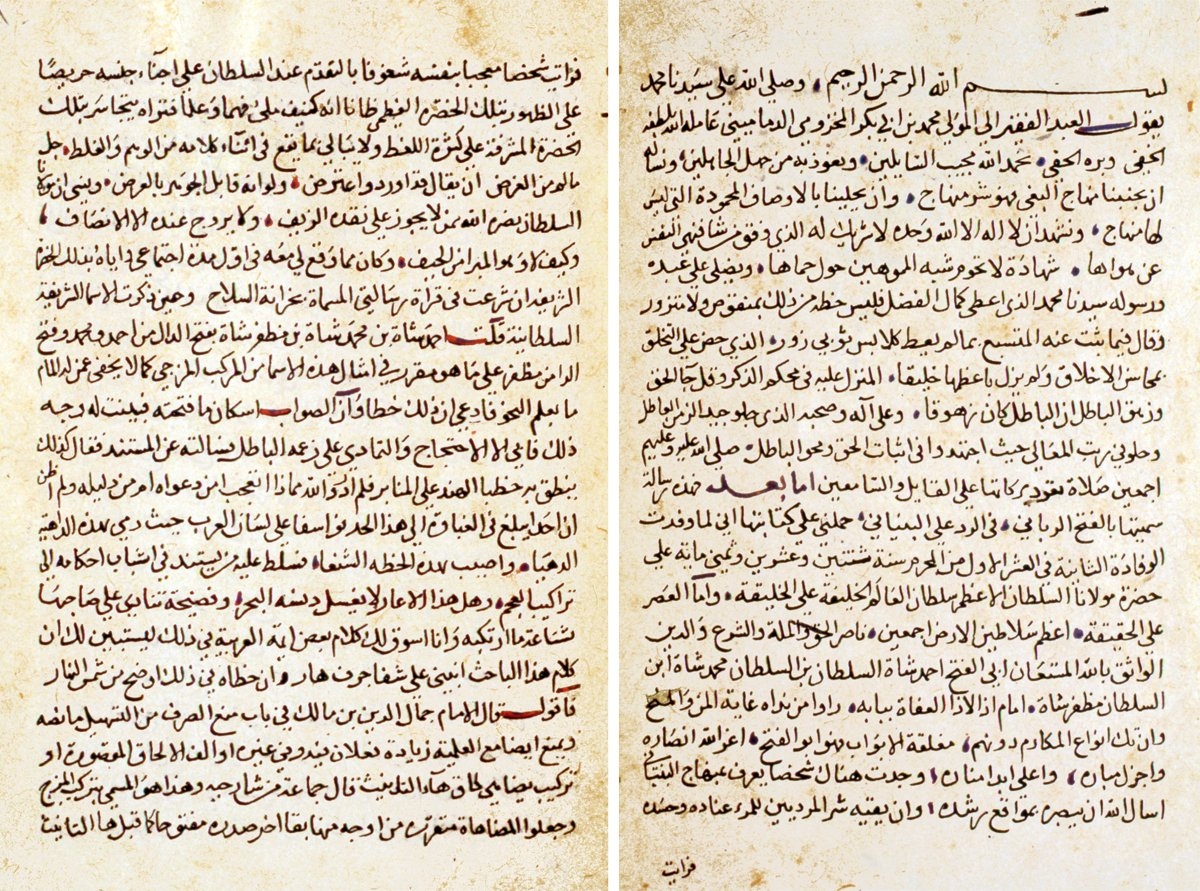 بسم الله الرحمن الرحيم وصلي الله علي سيدنا محمد
يقول العبد الفقير الي المولي محمد بن ابي بكر المخزومي الدماميني عامله الله بلطفه
الخفي وبره الحفي نحمد الله مجيب السايلين ونعوذ به من جهل الجاهلين ونساله
ان يجنبنا منهاج البغي فهو شر منهاج وان يحلينا بالاوصاف المحمودة التي ليس
لها منهاج ونشهد ان لا اله الا الله وحده لا شريك له الذي وفق من شا فنهي النفس
عن هواها شهادة لا تحوم شبه الموهين حول حماها ونصلي علي عبده
ورسوله سيدنا محمد الذي اعطي كمال الفضل فليس حظه من ذلك بمنقوص ولا منزور
وقال فيما ثبت عنه المتشبع بما لم يعط كلابس ثوبي زور الذي حض علي التخلق
بمحاسن الاخلاق ولم يزل باعظمها خليقا المنزل عليه في محكم الذكر وقل جا الحق
وزهق الباطل ان الباطل كان زهوقا وعلي اله وصحبه الذي حلو جيد الزمن العاطل
وحلو في رتب المعالي حيث اجتهدوا في اثبات الحق ومحو الباطل صلي الله عليه وعليهم
اجمعين صلاة تعود بركاتها علي القايل والسامعين اما بعد فهذه رسالة
سميتها بالفتح الرباني في الرد علي البنباني حملني علي كتابتها اني لما وفدت
الوفادة الثانية في العشر الاول من المحرم سنة ثنتين وعشرين وثمني ماية علي
حضرة مولانا السلطان الاعظم سلطان العالم الخليفة علي الخليقة واما العصر
علي الحقيقة اعظم سلاطين الارض اجمعين ناصر الحق والملة والشرع والدين
الواثق بالله المستعان ابي الفتح احمد شاة السلطان بن السلطان محمد شاة ابن
السلطان مظفر شاة امام اذ الاذ العفاة ببابه راوا من نداه غاية المن والمنح
وان تك ابواع المكارم دونهم مغلقة الابواب فهو ابو الفتح اعز الله انصاره
واجزل مباره واعلي ابدا مناره وجدت هناك شخصا يعرف بمنهاج البنباني
اسال الله ان يبصره بمواقع رشده وان يقيه شر المرديين للمرء عناده وحسده
فرايت
فرايت شخصا معجبا بنفسه شغوفا بالتقدم عند السلطان علي ابناء جنسه حريصا
علي الظهور بتلك الحضرة العظمي ظانا انه كنيف ملي فهما وعلما فتراه يتجاسر بتلك
الحضرة المشرفة علي كثرة اللغط ولا يبالي بما يقع في اثناء كلامه من الوهم والغلط جل
ماله من الغرض ان يقال قد اورد واعترض ولو انه قابل الجوهر بالعرض وينسي ان مولانا
السلطان نصره الله ممن لا يجوز علي نقده الزيف ولا يروج عنده الا الانصاف
وكيف لا وهو الميزان الحيف وكان مما وقع لي معه في اول مدة اجتماعي واياه بتلك الحضرة
الشريفة ان شرعت في قراة رسالتي المسماة بخزانة السلاح وحين ذكرت الاسما الشريفة
السلطانية قلت احمد شاة بن محمد شاة بن مظفر شاة بفتح الدال من احمد ومحمد وفتح
الرا من مظفر علي ما هو مقرر في امثال هذه الاسما من المركب المزجي كما لا يخفي عن له المام
ما بعلم النحو فادعي ان ذلك خطا وان الصواب اسكان ما فتحته فبينت له وجه
ذلك فابي الا الاحتجاج والتمادي علي زعمه الباطل فسالته عن المستند فقال كذلك
ينطق به خطبا الهند علي المنابر فلم ادر والله مماذا اتعجب امن دعواه ام من دليله ولم اظن
ان احدا يبلغ في الغباوة الي هذا الحد فوا اسفا علي لسان العرب حيث رمي بهذه الداهية
الدهيا واصيب بهذه الخطه الشنعاء فسلط عليه من يستند في اثبات احكامه الي
تراكيب العجم وهل هذا الا عار لا يغسل دنسه البحر وفضيحة تنادي علي صاحبها
بشناعة ما ارتكبه وانا اسوق لك كلام بعض ايمة العربية في ذلك ليستبين لك ان
كلام هذا الباحث انبني علي شفا جرف هار وان خطاه في ذلك اوضح من شمس النهار
فاقول قال الامام جمال الدين بن مالك في باب منع الصرف من التسهيل ما نصه
ويمنع ايضا مع العلمية زيادة فعلان فيه وفي غيره او الف الالحاق المقصورة او
تركيب يضاهي لحاق هاء التانيث قال جماعة من شارحيه وهذا هو المسمي بتركيب المزج
وجعلوا المضاهاة متقررة من اوجه منها بقا اخر صدره مفتوحا كما قبل ها التانيث